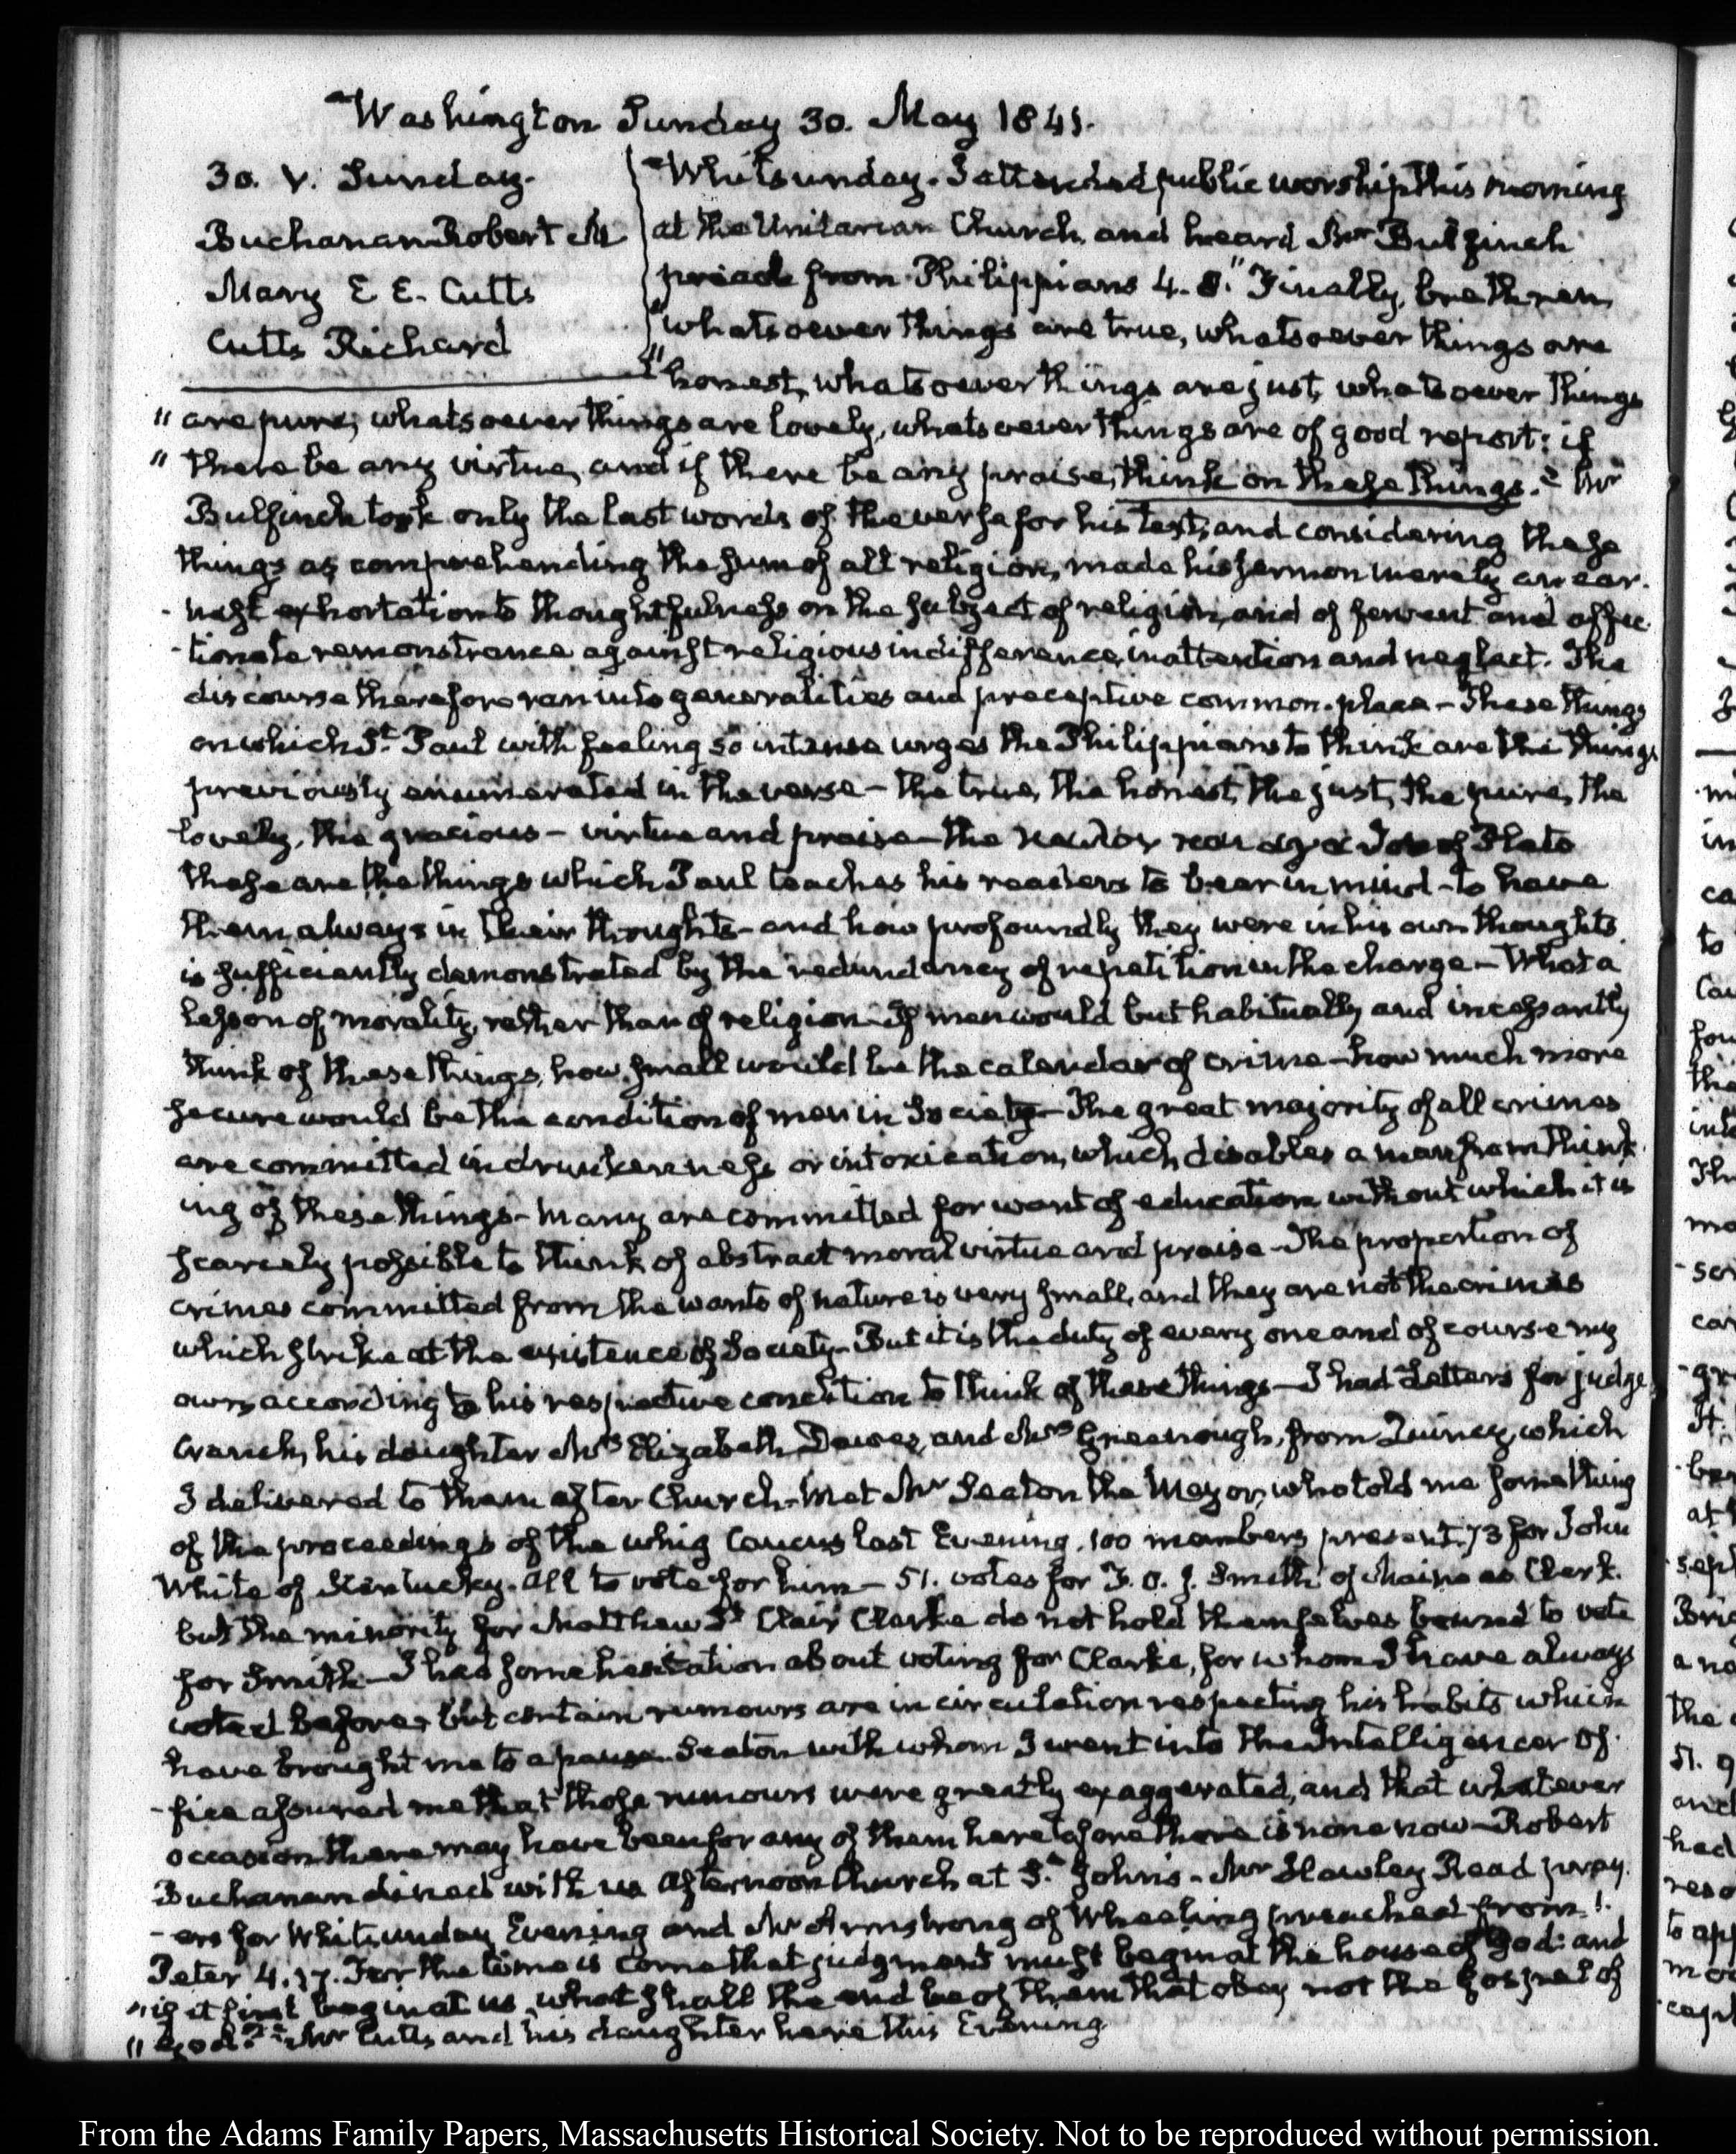 Washington Sunday 30. May 1841.
30. V. Sunday.
Buchanan Robert M
Mary E E. Cutts
Cutts Richard
Whitsunday. I attended public worship this morning
at the Unitarian Church, and heard Mr Bulfinch
preach from Philippians 4. 8. "Finally, brethren,
"whatsoever things are true, whatsoever things are
"honest, whatsoever things are just, whatsoever things
" are pure, whatsoever things are lovely, whatsoever things are of good report: if
" there be any virtue, and if there be any praise, think on these things." Mr
Bulfinch took only the last words of the verse for his text, and considering these
things as comprehending the sum of all religion, made his sermon merely an ear-
-nest exhortation to thoughtfulness on the subject of religion, and of fervent and affec-
-tionate remonstrance against religious indifference, inattention and neglect. The
discourse therefore ran into generalities and preceptive common-place – These things
on which St. Paul with feeling so intense urges the Philippians to think are the things
previously enumerated in the verse – the true, the honest, the just, the pure, the
lovely, the gracious – virtue and praise – the of Plato
these are the things which Paul teaches his readers to bear in mind – to have
them always in their thoughts – and how profoundly they were in his own thoughts
is sufficiently demonstrated by the redundancy of repetition in the charge – What a
lesson of morality, rather than of religion – If men would but habitually and incessantly
think of these things, how small would be the calendar of crime – how much more
secure would be the condition of men in Society – The great majority of all crimes
are committed in drunkenness or intoxication, which disables a man from think-
ing of these things – many are committed for want of education without which it is
scarcely possible to think of abstract moral virtue and praise – The proportion of
crimes committed from the wants of nature is very small, and they are not the crimes
which strike at the existence of Society – But it is the duty of every one and of course my
own, according to his respective condition to think of these things – I had Letters for judge
Cranch, his daughter Mrs Elizabeth Dawes, and Mrs Greenough, from Quincy, which
I delivered to them after Church – Met Mr Seaton the Mayor, who told me something
of the proceedings of the whig Caucus last Evening. 100 members present. 73 for John
White of Kentucky. All to vote for him – 51. votes for F. O. J. Smith of Maine as Clerk.
but the minority for Matthew St Clair Clarke do not hold themselves bound to vote
for Smith – I had some hesitation about voting for Clarke, for whom I have always
voted before, but certain rumours are in circulation respecting his habits which
have brought me to a pause. Seaton with whom I went into the Intelligencer Of-
-fice assured me that those rumours were greatly exaggerated, and that whatever
occasion there may have been for any of them heretofore there is none now – Robert
Buchanan dined with us Afternoon Church at St. John's – Mr Hawley Read pray-
-ers for Whitsunday Evening and Mr Armstrong of Wheeling preached from 1.
Peter 4. 17. For the time is come that judgment must begin at the house of God: and
"if it first begin at us, what shall the end be of them that obey not the gospel of
" God?" Mr Cutts and his daughter here this Evening
From the Adams Family Papers, Massachusetts Historical Society. Not to be reproduced without permission.